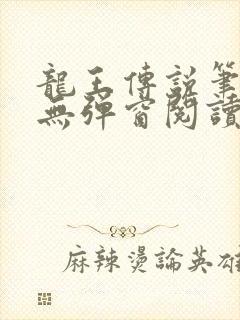 龍王傳說筆
無彈窗閱讀
麻辣燙論英雄